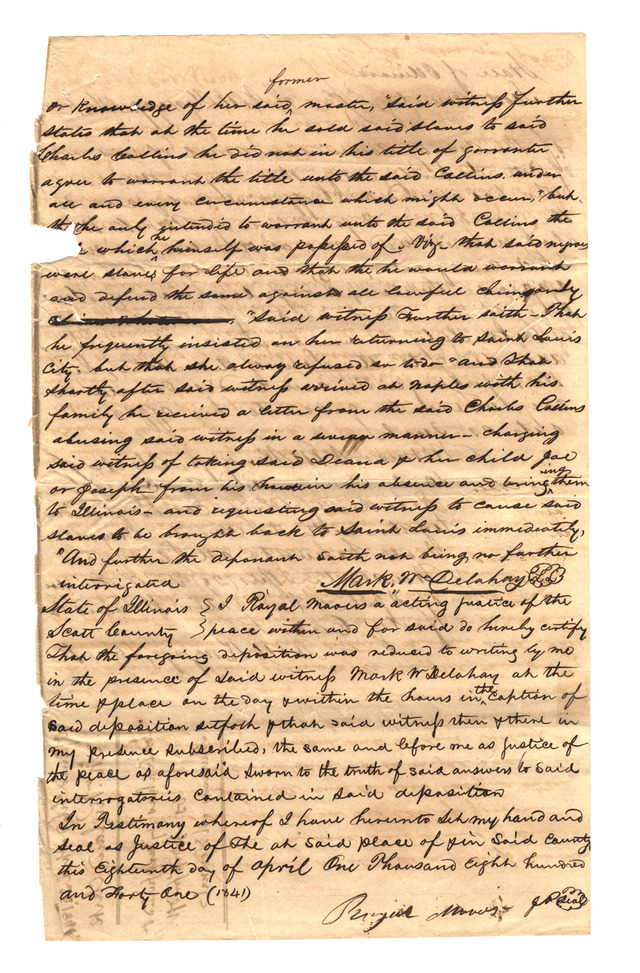 former
or Knowledge of her said master," Said witness Further
states that at the time he sold said slaves to said
Charles Collins he did not in his title of garrantee
agree to warrant the title unto the said Collins under
all and every circumstance which might occur," but
he only intended to warrant unto the said Collins the
which he himself was possessed of. Viz that said negroes
were slaves for life and that the he would warrant
and defend the same against all lawful only
"Said witness Further saith – That
he frequently insisted on her returning to Saint Louis
City. but that she always refused so to do "And That
shortly after said witness arrived at Naples with his
family he recieved a letter from the said Charles Collins
abusing said witness in a manner – charging
said witness of taking said Diana & her child Joe
or Joseph from his in his absence and bringing them
to Illinois – and requesting said witness to cause said
slaves to be brought back to Saint Louis immediately,
"And further the deponant saith not being no further
interrigated Mark W Delahay
State of Illinois } I Royal Mooers a "acting Justice of the
Scott County } peace within and for said do hereby certify
That the foregoing deposition was reduced to writing by me
in the presence of Said witness Mark W Delahay at the
time & place on the day & within the hours in the Caption of
said deposition setfoth & that said witness then & there in
my presence subscribed, the same and before me as Justice of
the peace as aforesaid Sworn to the truth of said answers to said
interrogatories Contained in said deposition
In Testimony whereof I have hereunto set my hand and
seal as Justice of The at said place of in Said County
this Eighteenth day of April One Thousand Eight hundred
and Forty One (1841)
Royal Mooers J P Seal